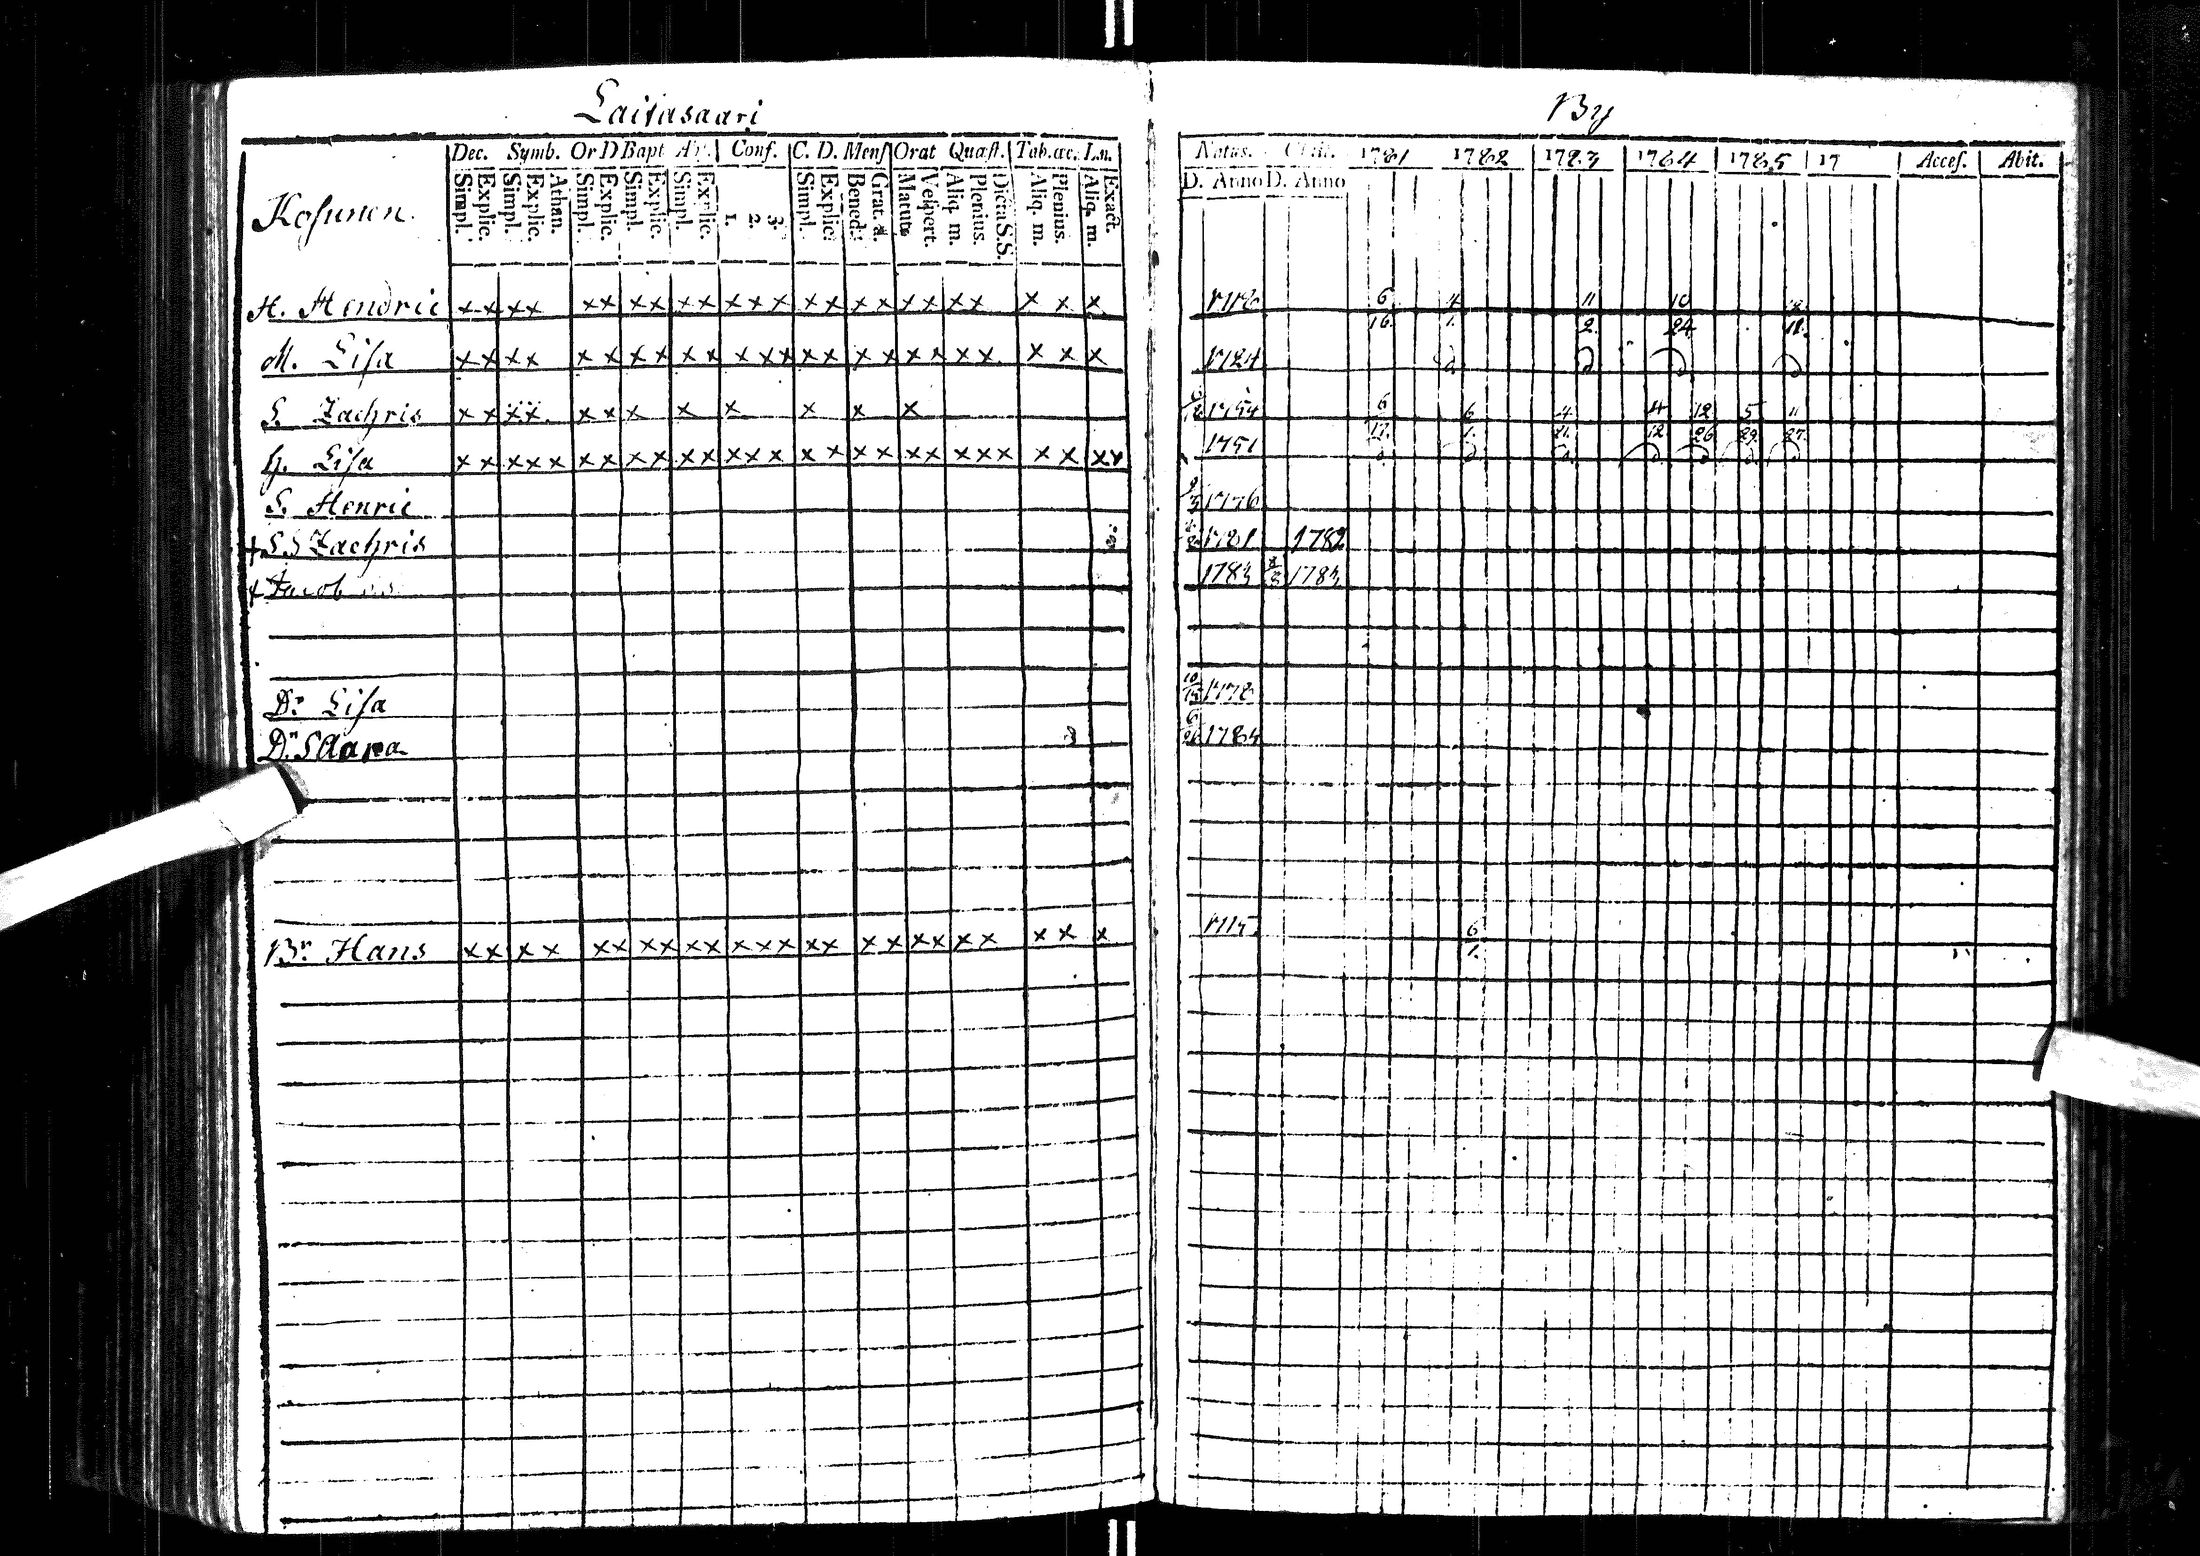 Laitasaari
By
Dec. Symb. Or D Bapt Conf. C. D. Mens Orat Quæst. Tab. œc. Ln.
Natus. 1781 1782 1783 1784 1785 17 Acces. Abit.
D. Anno D. Anno
Simpl. Explic. Simpl. Explic. Athan. Simpl. Explic. Simpl. Explic. Simpl. Explic. 1. 2. 3. Simpl. Explic. Bened. Grat. a. Matut. Vespert. Aliq. m. Plenius. Dicta S.S. Aliq. m. Plenius. Aliq. m. Exact.
Kosunen.
H. Hendric x x x x x x x x x x x x x x x x x x x x x x x x 6/16. 4/1. 11/2. 10/24
M. Lisa x x x x x x x x x x x x x x x x x x x x x x x x 1724
S. Zachris x x x x x x x x x x x x 1754 6/17. 6/1. 4/12. 12/26 5/29. 11/27.
H. Lisa x x x x x x x x x x x x x x x x x x x x x x x x x x x 1751
S. Henric 1776
+ S. S Zachris 1781 1782
+ Jacob 1783 1783
Dr. Lisa 10/ 1778
Dr. Saara 1784
Br. Hans x x x x x x x x x x x x x x x x x x x x x x x x 1715. 6/1.